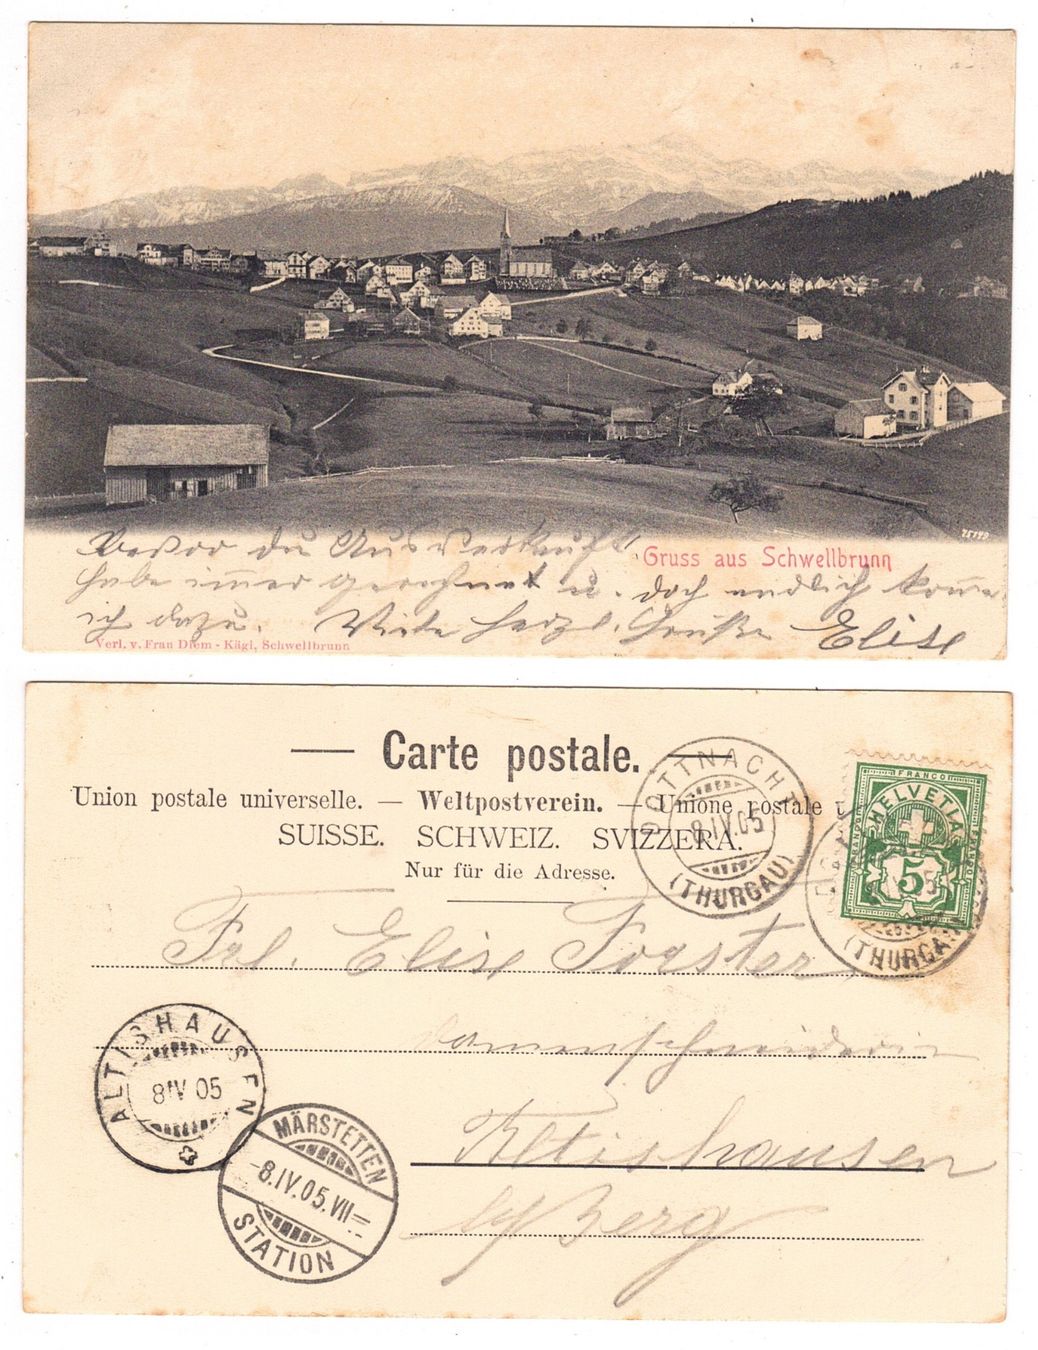 75799
Gruss aus Schwellbrunn
du Ausverkauft
habe immer gerechnet u. doch endlich komme
ich dazu. Viele herzl. Grüße Elise
Verl. v. Frau Diem - Kägi, Schwellbrunn
Carte postale.
Union postale universelle. — Weltpostverein. — Unione postale u
SUISSE. SCHWEIZ. SVIZZERA.
Nur für die Adresse.
DOTTNACHT
8.IV.05
(THURGAU)
FRANCO
HELVETIA
FRANCO
5
(THURGA
Frl. Elise Forster
Damenschneiderin
Altishausen
b/Berg
ALTISHAUSEN
8 IV 05
MÄRSTETTEN
-8.IV.05.VII-
STATION